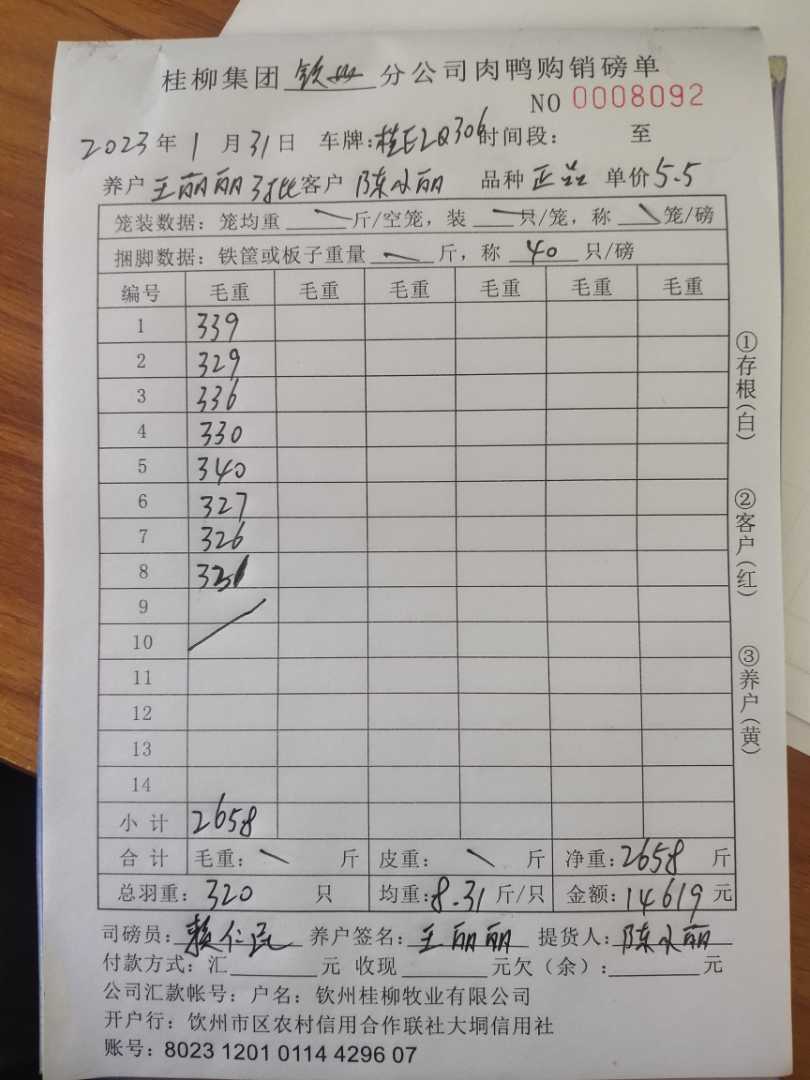 桂柳集团 钦州 分公司肉鸭购销磅单
NO 0008092
2023年 1 月 31 日 车牌:桂E2Q306 时间段: 至
养户 王丽丽3批 客户 陈水丽 品种 正品 单价 5.5
笼装数据: 笼均重 斤/空笼, 装 只/笼, 称 笼/磅
捆脚数据: 铁筐或板子重量 斤, 称 40 只/磅
编号 毛重 毛重 毛重 毛重 毛重 毛重
1 339
2 329
3 336
4 330
5 340
6 327
7 326
8
9
10
11
12
13
14
小计 2658
合计 毛重: 斤 皮重: 斤 净重: 2658 斤
总羽重: 320 只 均重: 8.31 斤/只 金额: 14619 元
司磅员: 养户签名: 王丽丽 提货人: 陈水丽
付款方式: 汇 元 收现 元欠(余): 元
公司汇款帐号: 户名: 钦州桂柳牧业有限公司
开户行: 钦州市区农村信用合作联社大垌信用社
账号: 8023 1201 0114 4296 07
①存根(白)
②客户(红)
③养户(黄)